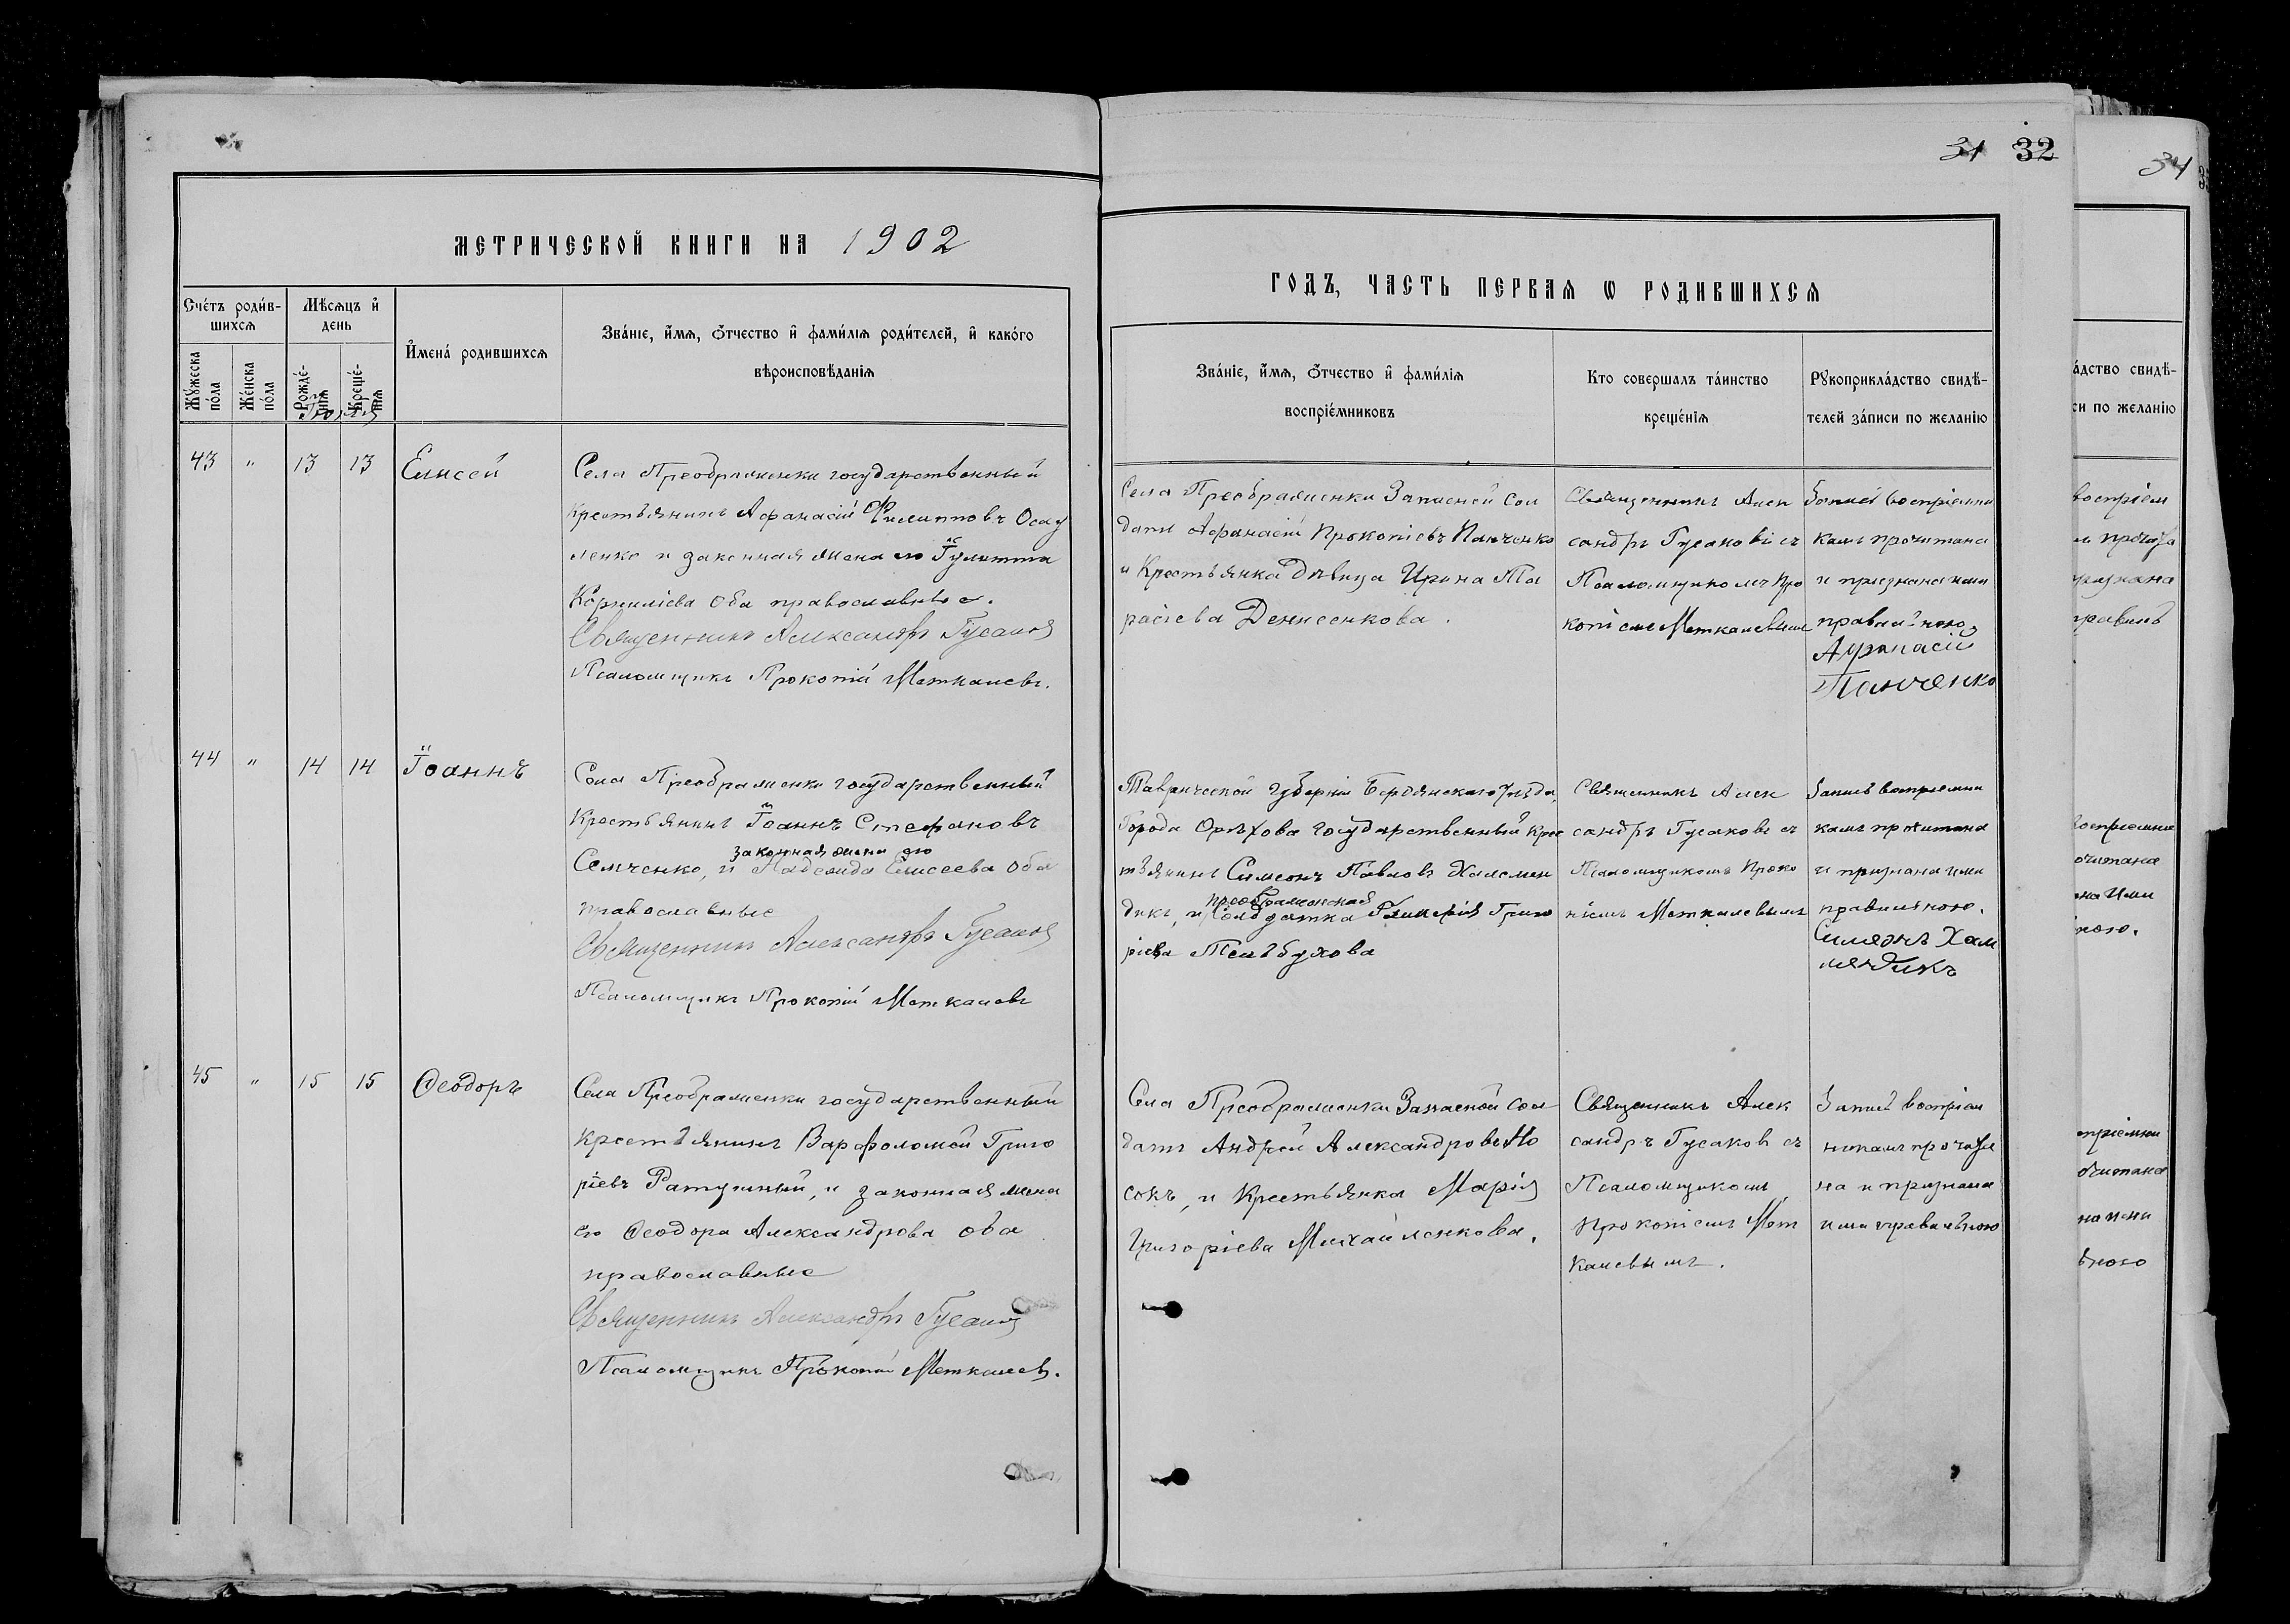 31 32
34
МЕТРИЧЕСКОЙ КНИГИ НА 1902
ГОДЪ, ЧАСТЬ ПЕРВАЯ Ѡ РОДИВШИХСЯ
Счéтъ родѝв-
шихся
Мѣсяцъ и҆
день
Мꙋ́жеска
по́ла
Же́нска
по́ла
Рожде́-
нія
Креще́-
нія
Іюля
И҆мена́ родившихся
Зва́ніе, и҆́мя, ѻ҆́тчество и҆ фами́лія роди́телей, и҆ како́го
вѣроисповѣ́данія
Зва́ніе, и҆́мя, ѻ҆́тчество и҆ фами́лія
воспріе́мниковъ
Кто совершалъ та́инство
креще́нія
Рꙋкоприкла́дство свидѣ́-
телей за́писи по желанію
43 " 13 13 Елисей
Села Преображенки государственный
крестьянинъ Афанасій Филипповъ Осау
ленко и законная жена его Іулитта
Корнилiева оба православные.
Священникъ Александръ Гусаковъ
Псаломщикъ Прокопій Меткалевъ.
Села Преображенки Запасной Сол
датъ Афанасій Прокопіевъ Панченко
и Крестьянка Дѣвица Ирина Та
расіева Денисенкова.
Священникъ Алек
сандръ Гусаковъ съ
Псаломщикомъ Про
копіемъ Меткалевымъ
Запись воспріемни
камъ прочитана
и признана ими
правильною.
Афанасій
Панченко
44 " 14 14 Іоаннъ
Села Преображенки государственный
Крестьянинъ Іоаннъ Стефановъ
законная жена его
Семченко, и Надежда Елисеева Оба
православные
Священникъ Александръ Гусаковъ
Псаломщикъ Прокопій Меткалевъ
Таврической Губерніи Бердянскаго уѣзда,
Города Орѣхова государственный Крес
тьянинъ Симеонъ Павловъ Халемен
преображенская
дикъ, и Солдатка Гликерія Григо
ріева Тельбухова
Священникъ Алек
сандръ Гусаковъ съ
Псаломщикомъ Проко
піемъ Меткалевымъ
Запись воспріемни
камъ прочитана
и признана ими
правильною.
Симеонъ Халi
мендикъ
45 " 15 15 Ѳеодоръ
Села Преображенки государственный
крестьянинъ Варфоломей Григо
ріевъ Ратушный, и законная жена
его Ѳеодора Александрова оба
православные
Священникъ Александръ Гусаковъ
Псаломщикъ Прокопій Меткалевъ.
Села Преображенки Запасной сол
датъ Андрей Александровъ Но
сокъ, и Крестьянка Марія
Григоріева Михайленкова.
Священникъ Алек
сандръ Гусаковъ съ
Псаломщикомъ
Прокопіемъ Мет
калевымъ.
Запись воспріем
никамъ прочита
на и признана
ими правильною